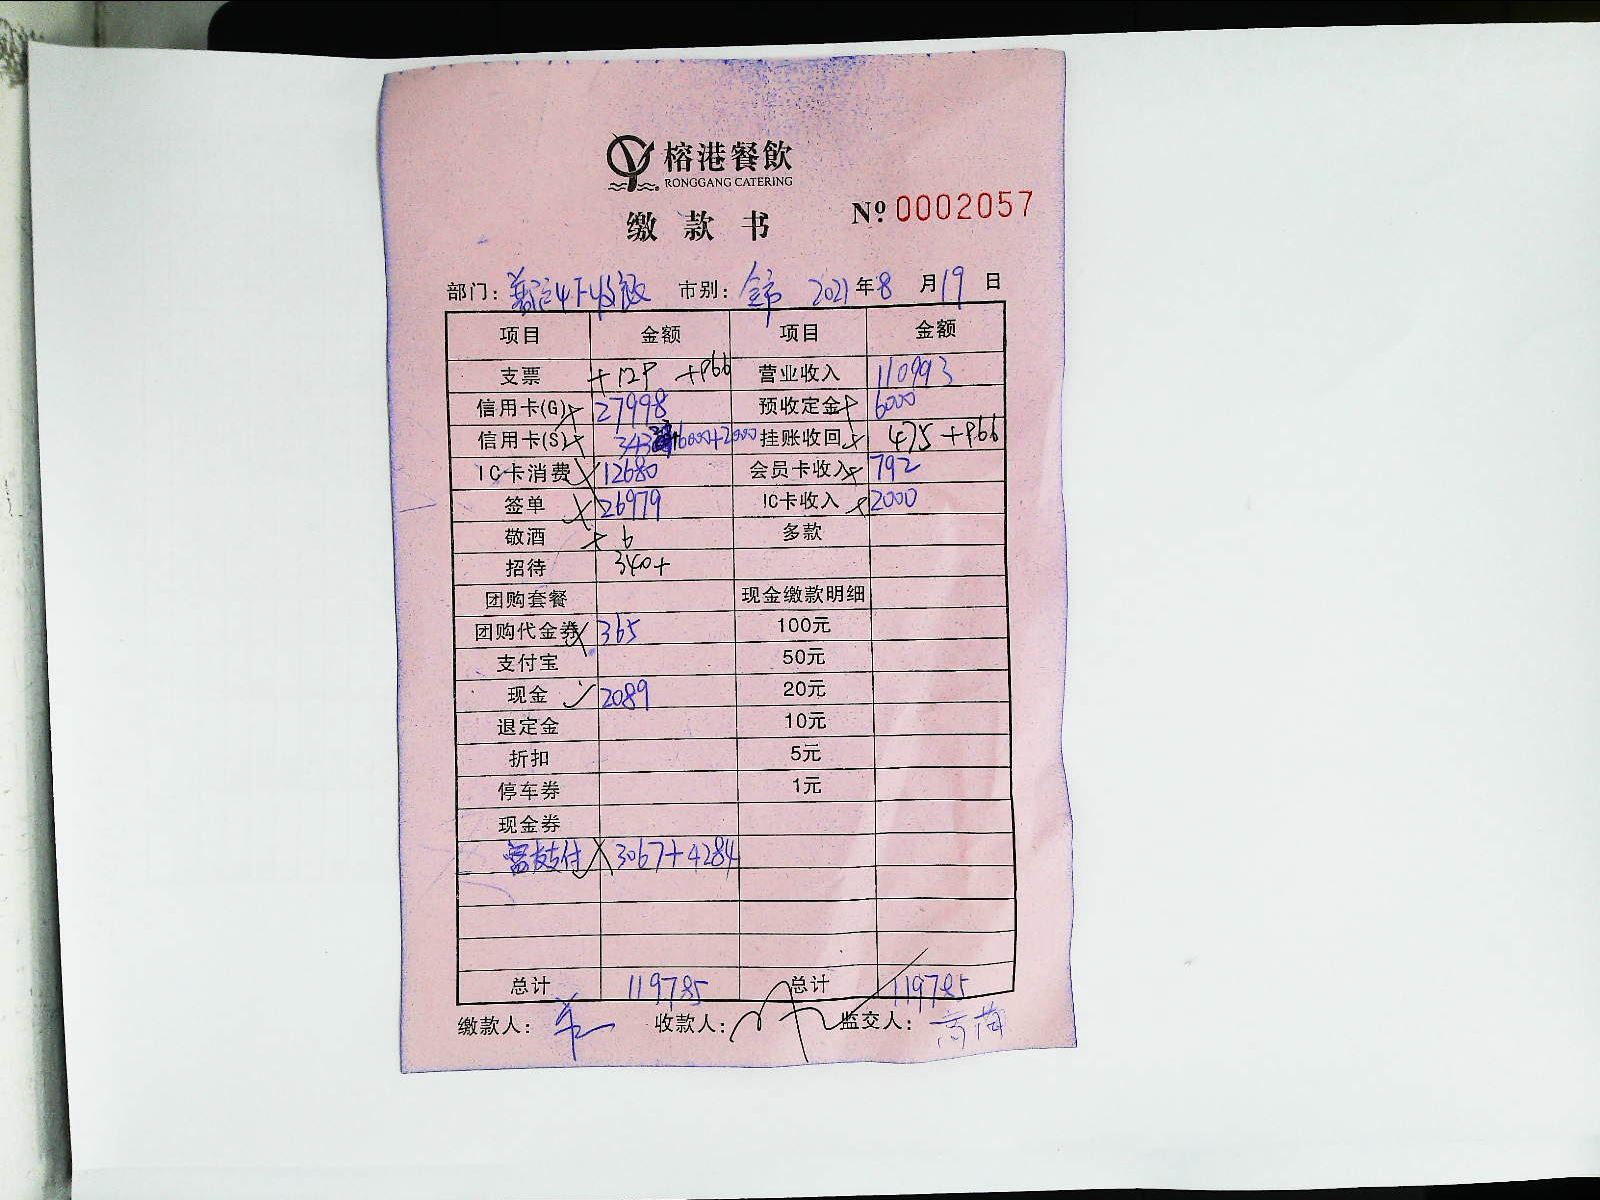 榕港餐飲
RONGGANG CATERING
缴款书 Nº 0002057
部门: 市别: 全市 2021年8月19日
项目 金额 项目 金额
支票 营业收入 110993
信用卡(G) 27998 预收定金 6000
信用卡(S) +6000+2000 挂账收回 475
IC卡消费 12680 会员卡收入 792
签单 26979 IC卡收入 2000
敬酒 6 多款
招待 340+
团购套餐 现金缴款明细
团购代金券 365 100元
支付宝 50元
现金 2089 20元
退定金 10元
折扣 5元
停车券 1元
现金券
支付 3067+4284
总计 119785 总计 119785
缴款人: 收款人: 监交人: